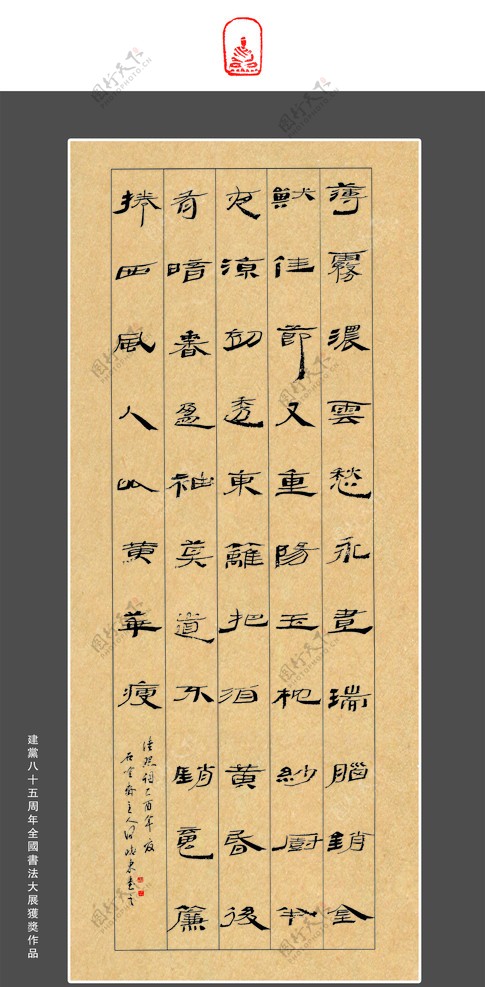 薄霧濃雲愁永晝瑞腦銷金
獸佳節又重陽玉枕紗厨半
夜涼初透東籬把酒黃昏後
有暗香盈袖莫道不銷魂簾
捲西風人比黃華瘦
清照詞乙酉年
主人
建黨八十五周年全國書法大展獲獎作品
图行天下
PHOTOPHOTO.CN